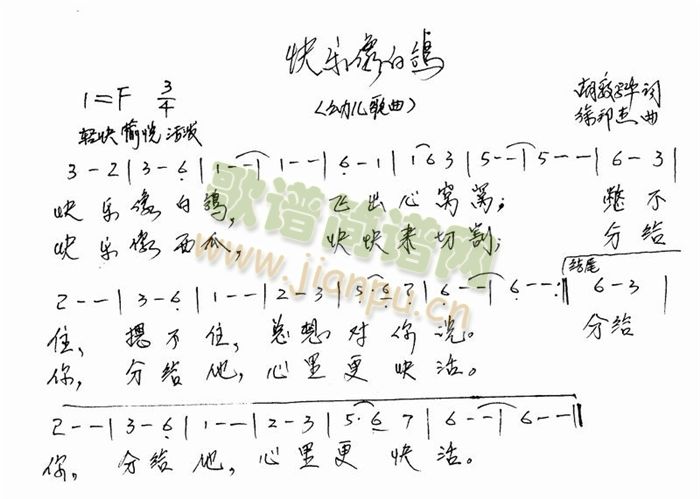 快乐像白鸽
(幼儿歌曲)
1=F 3/4
胡敦华 词
徐邦杰 曲
轻快 愉悦 活泼
3-2|3-6|1--|1--|6-1|163|5--|5--|6-3|
快乐像白鸽, 飞出心窝窝; 憋不
快乐像西瓜, 快快来切割; 分给
歌谱简谱网
www.jianpu.cn
结尾
2--|3-6|1--|2-3|5·67|6--|6--:‖6-3|
住, 摁不住, 总想对你说。 分给
你, 分给他, 心里更快活。
2--|3-6|1--|2-3|5·67|6--|6--‖
你, 分给他, 心里更快活。